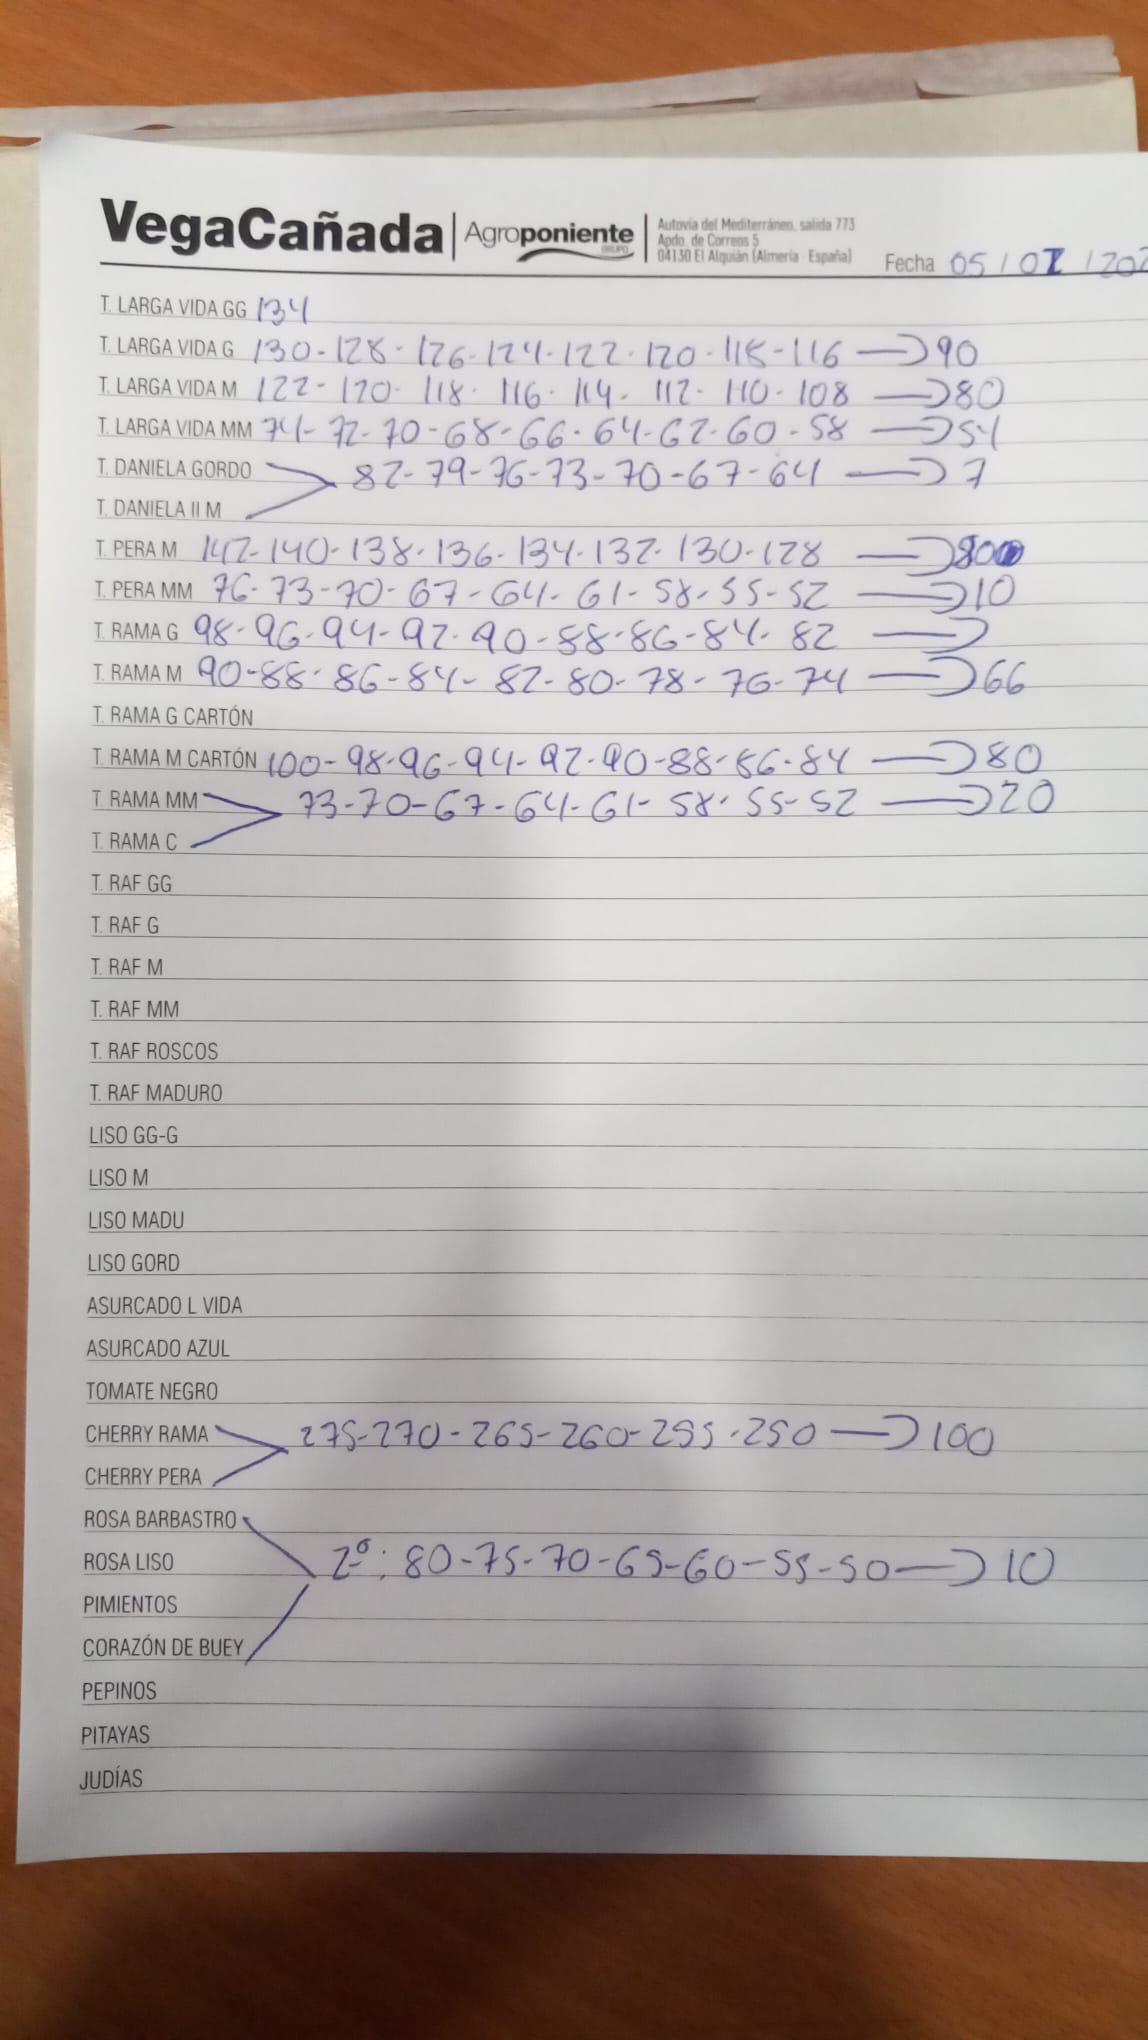 VegaCañada | Agroponiente GRUPO
Autovía del Mediterráneo, salida 773
Apdo. de Correos 5
04130 El Alquián (Almería - España)
Fecha 05 / 02 / 202
T. LARGA VIDA GG 134
T. LARGA VIDA G 130-128-126-124-122-120-118-116 → 90
T. LARGA VIDA M 122-120-118-116-114-112-110-108 → 80
T. LARGA VIDA MM 74-72-70-68-66-64-62-60-58 → 54
T. DANIELA GORDO 82-79-76-73-70-67-64 → 7
T. DANIELA II M
T. PERA M 142-140-138-136-134-132-130-128 → 80
T. PERA MM 76-73-70-67-64-61-58-55-52 → 10
T. RAMA G 98-96-94-92-90-88-86-84-82 →
T. RAMA M 90-88-86-84-82-80-78-76-74 → 66
T. RAMA G CARTÓN
T. RAMA M CARTÓN 100-98-96-94-92-90-88-86-84 → 80
T. RAMA MM 73-70-67-64-61-58-55-52 → 20
T. RAMA C
T. RAF GG
T. RAF G
T. RAF M
T. RAF MM
T. RAF ROSCOS
T. RAF MADURO
LISO GG-G
LISO M
LISO MADU
LISO GORD
ASURCADO L VIDA
ASURCADO AZUL
TOMATE NEGRO
CHERRY RAMA 275-270-265-260-255-250 → 100
CHERRY PERA
ROSA BARBASTRO
ROSA LISO 2º: 80-75-70-65-60-55-50 → 10
PIMIENTOS
CORAZÓN DE BUEY
PEPINOS
PITAYAS
JUDÍAS